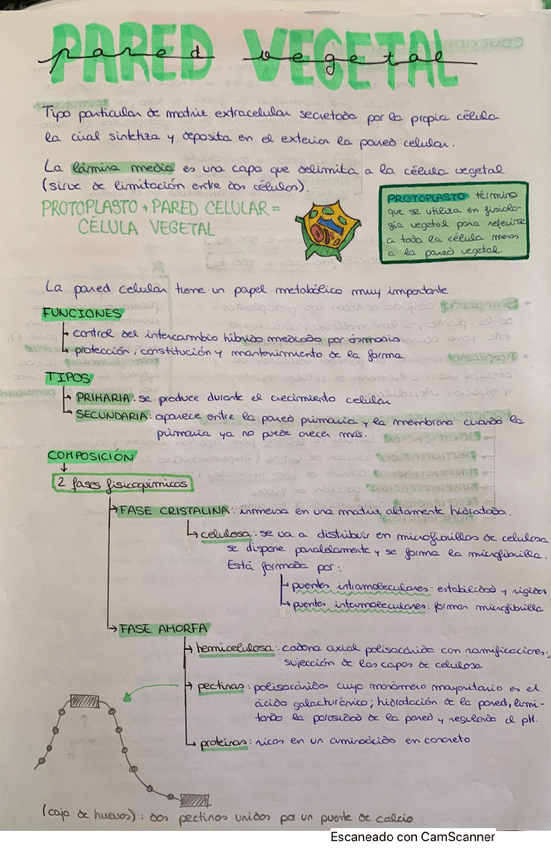 PARED VEGETAL
pared vegetal
Tipo particular de matriz extracelular secretada por la propia célula
la cual sintetiza y deposita en el exterior la pared celular.
La lámina media es una capa que delimita a la célula vegetal
(sirve de limitación entre dos células).
PROTOPLASTO + PARED CELULAR =
CÉLULA VEGETAL
PROTOPLASTO término
que se utiliza en fisiolo-
gía vegetal para referirse
a toda la célula menos
a la pared vegetal
La pared celular tiene un papel metabólico muy importante.
FUNCIONES
control del intercambio híbrido mediado por ósmosis
protección, constitución y mantenimiento de la forma
TIPOS
PRIMARIA: se produce durante el crecimiento celular
SECUNDARIA: aparece entre la pared primaria y la membrana cuando la
primaria ya no puede crecer más.
COMPOSICIÓN
2 fases fisicoquímicas
FASE CRISTALINA: inmersa en una matriz altamente hidratada.
celulosa: se va a distribuir en microfibrillas de celulosa
se dispone paralelamente y se forma la microfibrilla.
Está formada por:
puentes intramoleculares: estabilidad y rigidez
puentes intermoleculares: forman microfibrilla
FASE AMORFA
hemicelulosa: cadena axial polisacárida con ramificaciones;
sujección de las capas de celulosa
pectinas: polisacáridos cuyo monómero mayoritario es el
ácido galacturónico; hidratación de la pared, limi-
tando la porosidad de la pared y regulando el pH.
proteínas: ricas en un aminoácido en concreto
(caja de huevos): dos pectinas unidas por un puente de calcio
Escaneado con CamScanner